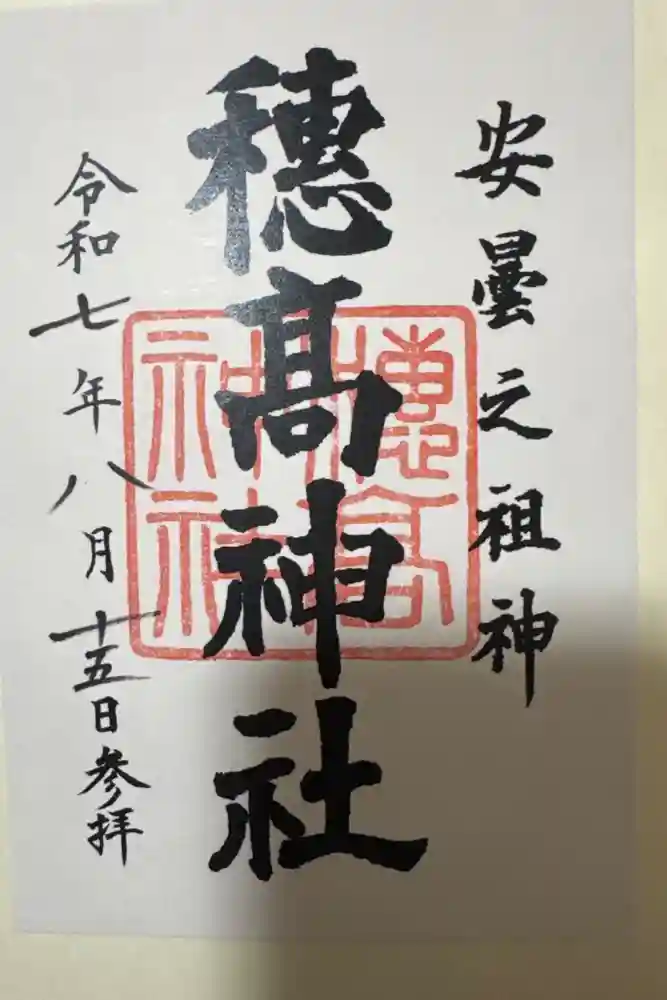 安曇之祖神
穂髙神社
穂高
神社
令和七年八月十五日参拝